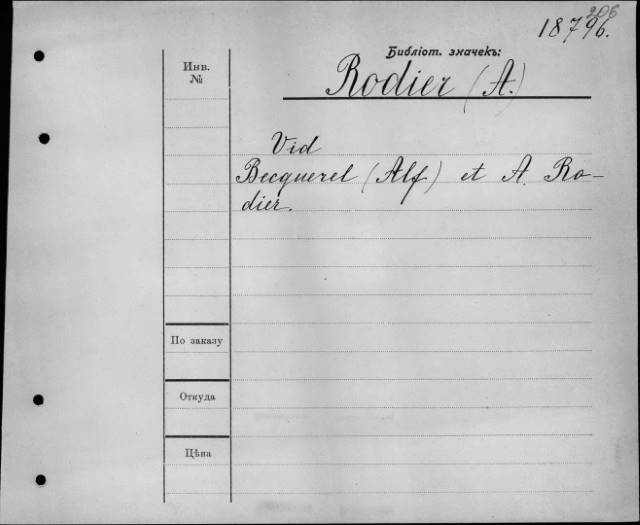 206
18796.
Библіот. значекъ:
Rodier (A.)
Инв.
№
Vid
Becquerel (Alf) et A. Ro-
dier.
По заказу
Откуда
Цѣна